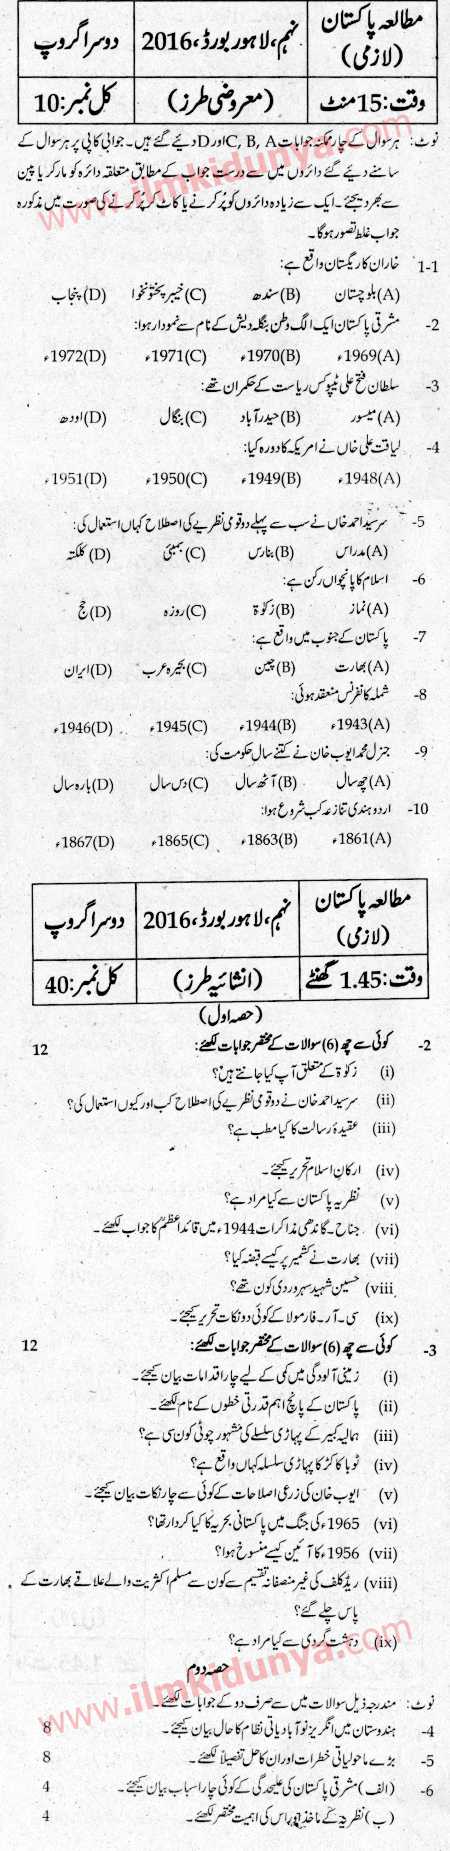 مطالعہ پاکستان (لازمی) نہم، لاہور بورڈ، 2016 دوسرا گروپ
وقت: 15 منٹ (معروضی طرز) کل نمبر: 10
نوٹ: ہر سوال کے چار ممکنہ جوابات A، B، C اور D دیئے گئے ہیں۔ جوابی کاپی پر ہر سوال کے
سامنے دیئے گئے دائروں میں سے درست جواب کے مطابق متعلقہ دائرہ کو مارکر یا پین
سے بھر دیجئے۔ ایک سے زیادہ دائروں کو پُر کرنے یا کاٹ کر پُر کرنے کی صورت میں مذکورہ
جواب غلط تصور ہوگا۔
1-1 خاران کا ریگستان واقع ہے:
(A) بلوچستان (B) سندھ (C) خیبر پختونخوا (D) پنجاب
2- مشرقی پاکستان ایک الگ وطن بنگلہ دیش کے نام سے نمودار ہوا:
(A) 1969ء (B) 1970ء (C) 1971ء (D) 1972ء
3- سلطان فتح علی ٹیپو کس ریاست کے حکمران تھے:
(A) میسور (B) حیدر آباد (C) بنگال (D) اودھ
4- لیاقت علی خاں نے امریکہ کا دورہ کیا:
(A) 1948ء (B) 1949ء (C) 1950ء (D) 1951ء
5- سرسید احمد خاں نے سب سے پہلے دو قومی نظریے کی اصطلاح کہاں استعمال کی:
(A) مدراس (B) بنارس (C) بمبئی (D) کلکتہ
6- اسلام کا پانچواں رکن ہے:
(A) نماز (B) زکوٰۃ (C) روزہ (D) حج
7- پاکستان کے جنوب میں واقع ہے:
(A) بھارت (B) چین (C) بحیرہ عرب (D) ایران
8- شملہ کانفرنس منعقد ہوئی:
(A) 1943ء (B) 1944ء (C) 1945ء (D) 1946ء
9- جنرل محمد ایوب خان نے کتنے سال حکومت کی:
(A) چھ سال (B) آٹھ سال (C) دس سال (D) بارہ سال
10- اردو ہندی تنازعہ کب شروع ہوا:
(A) 1861ء (B) 1863ء (C) 1865ء (D) 1867ء
مطالعہ پاکستان (لازمی) نہم، لاہور بورڈ، 2016 دوسرا گروپ
وقت: 1.45 گھنٹے (انشائیہ طرز) کل نمبر: 40
(حصہ اول)
2- کوئی سے چھ (6) سوالات کے مختصر جوابات لکھئے: 12
(i) زکوٰۃ کے متعلق آپ کیا جانتے ہیں؟
(ii) سرسید احمد خان نے دو قومی نظریے کی اصطلاح کب اور کیوں استعمال کی؟
(iii) عقیدۂ رسالت کا کیا مطب ہے؟
(iv) ارکان اسلام تحریر کیجئے۔
(v) نظریہ پاکستان سے کیا مراد ہے؟
(vi) جناح۔گاندھی مذاکرات 1944ء میں قائداعظمؒ کا جواب لکھئے۔
(vii) بھارت نے کشمیر پر کیسے قبضہ کیا؟
(viii حسین شہید سہروردی کون تھے؟
(ix) سی۔آر۔فارمولا کے کوئی دو نکات تحریر کیجئے۔
3- کوئی سے چھ (6) سوالات کے مختصر جوابات لکھئے: 12
(i) زمینی آلودگی میں کمی کے لیے چار اقدامات بیان کیجئے۔
(ii) پاکستان کے پانچ اہم قدرتی خطوں کے نام لکھئے۔
(iii) ہمالیہ کبیر کے پہاڑی سلسلے کی مشہور چوٹی کون سی ہے؟
(iv) ٹوبا کاکڑ کا پہاڑی سلسلہ کہاں واقع ہے؟
(v) ایوب خان کی زرعی اصلاحات کے کوئی سے چار نکات بیان کیجئے۔
(vi) 1965ء کی جنگ میں پاکستانی بحریہ کا کیا کردار تھا؟
(vii) 1956ء کا آئین کیسے منسوخ ہوا؟
(viii) ریڈ کلف کی غیر منصفانہ تقسیم سے کون سے مسلم اکثریت والے علاقے بھارت کے
پاس چلے گئے؟
(ix) دہشت گردی سے کیا مراد ہے؟
حصہ دوم
نوٹ: مندرجہ ذیل سوالات میں سے صرف دو کے جوابات لکھئے۔
4- ہندوستان میں انگریز نوآبادیاتی نظام کا حال بیان کیجئے۔ 8
5- بڑے ماحولیاتی خطرات اور ان کا حل تفصیلاً لکھئے۔ 8
6- (الف) مشرقی پاکستان کی علیحدگی کے کوئی چار اسباب بیان کیجئے۔ 4
(ب) نظریہ کے ماخذ اور اس کی اہمیت مختصر لکھئے۔ 4
www.ilmkidunya.com
www.ilmkidunya.com